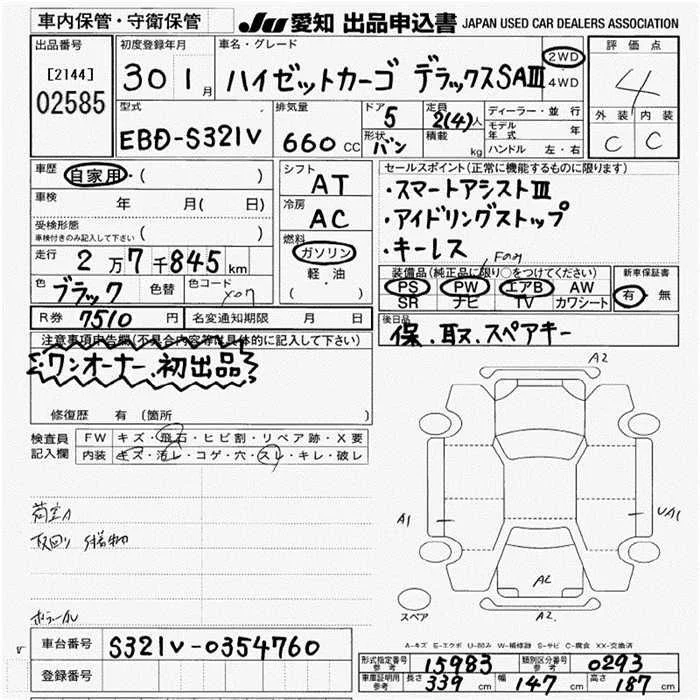 車内保管・守衛保管 JU 愛知 出品申込書 JAPAN USED CAR DEALERS ASSOCIATION
出品番号 初度登録年月 車名・グレード 評価点
[2144] 02585 30 1月 ハイゼットカーゴ デラックスSAⅢ 2WD 4WD 4
型式 排気量 ドア 5 定員 2(4)人 ディーラー・並行 外装 内装
EBD-S321V 660 CC 形状 バン 積載 kg モデル年式 年 C C
ハンドル 左・右
車歴 自家用・( ) シフト AT セールスポイント(正常に機能するものに限ります)
車検 年 月( 日) 冷房 AC ・スマートアシストⅢ
受検形態 車検付きのみ記入して下さい ( ) ・アイドリングストップ
走行 2万7千845km 燃料 ガソリン ・キーレス
軽・油 ( ) Fのみ
色 ブラック 色替 色コード X07 装備品(純正品に限り○をつけてください) 新車保証書
PS PW エアB AW 有・無
SR ナビ TV カワシート
R券 7510 円 名変通知期限 月 日 後日品
保.取.スペアキー
注意事項申告欄(不具合内容等は具体的に記入して下さい)
ワンオーナー.初出品
修復歴 有 (箇所 )
検査員記入欄 FW キズ・飛石・ヒビ割・リペア跡・X要
内装 キズ・汚レ・コゲ・穴・スレ・キレ・破レ
A2
A1 UA1
荷室A
下回り
A2
A2
スペア
車台番号 S321V-0354760
登録番号
A-キズ E-エクボ U-凹み W-補修跡 S-サビ C-腐食 XX-交換済
形式指定番号 参考 15983 類別区分番号 参考 0293
車庫証明用 参考 長さ 339 cm 幅 147 cm 高さ 187 cm